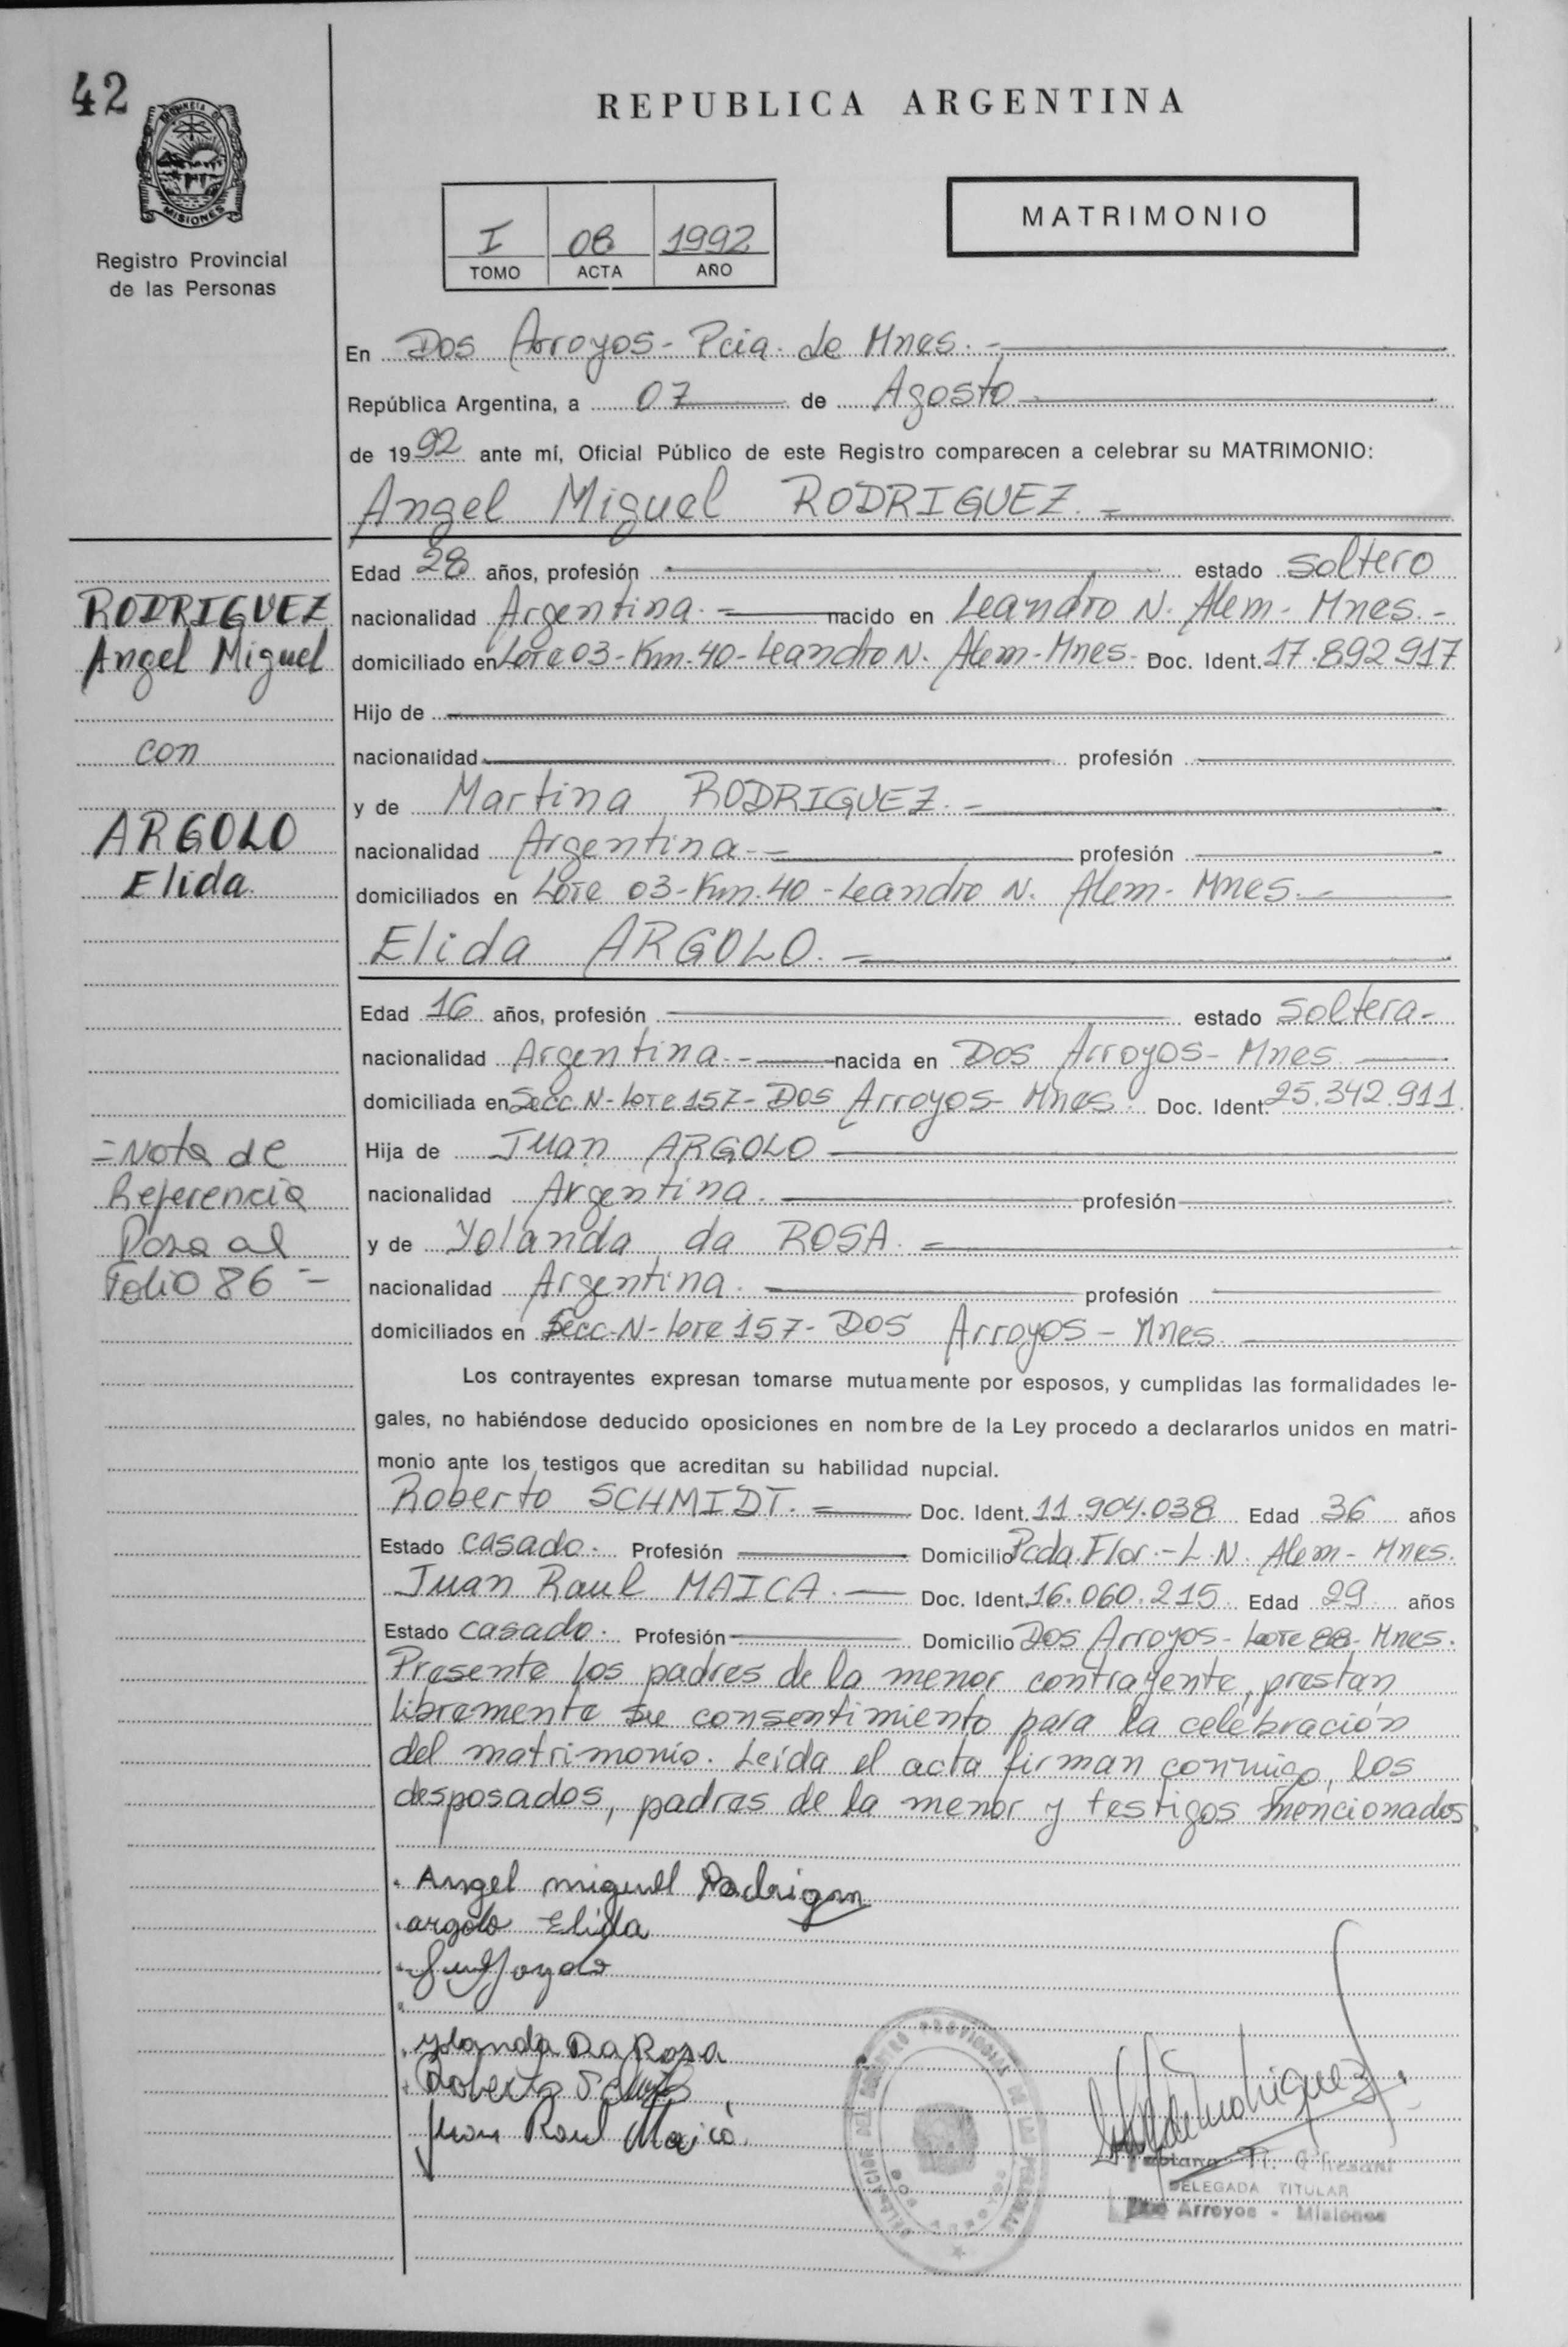 42
REPUBLICA ARGENTINA
MISIONES
Registro Provincial
de las Personas
I 08 1992
TOMO ACTA AÑO
MATRIMONIO
En Dos Arroyos - Pcia. de Mnes. -
República Argentina, a 07 de Agosto
de 1992 ante mí, Oficial Público de este Registro comparecen a celebrar su MATRIMONIO:
Angel Miguel RODRIGUEZ. =
Edad 28 años, profesión estado Soltero
nacionalidad Argentina. = nacido en Leandro N. Alem - Mnes. -
domiciliado en Lote 03 - Km. 40 - Leandro N. Alem - Mnes - Doc. Ident. 17.892.917
Hijo de
nacionalidad profesión
y de Martina RODRIGUEZ. =
nacionalidad Argentina. - profesión
domiciliados en Lote 03 - Km. 40 - Leandro N. Alem - Mnes. -
Elida ARGOLO. =
Edad 16 años, profesión estado Soltera -
nacionalidad Argentina. - nacida en Dos Arroyos - Mnes
domiciliada en Secc. N - Lote 157 - Dos Arroyos - Mnes. Doc. Ident. 25.342.911
Hija de Juan ARGOLO
nacionalidad Argentina. profesión
y de Yolanda da ROSA. =
nacionalidad Argentina. profesión
domiciliados en Secc - N - Lote 157 - Dos Arroyos - Mnes.
Los contrayentes expresan tomarse mutuamente por esposos, y cumplidas las formalidades le-
gales, no habiéndose deducido oposiciones en nombre de la Ley procedo a declararlos unidos en matri-
monio ante los testigos que acreditan su habilidad nupcial.
Roberto SCHMIDT. = Doc. Ident. 11.904.038 Edad 36 años
Estado casado. Profesión Domicilio Pcda. Flor. - L. N. Alem - Mnes.
Juan Raul MAICA. Doc. Ident. 16.060.215 Edad 29 años
Estado casado. Profesión Domicilio Dos Arroyos - Lote 88 - Mnes.
Presente los padres de la menor contrayente, prestan
libremente su consentimiento para la celebración
del matrimonio. Leída el acta firman conmigo, los
desposados, padres de la menor y testigos mencionados
Angel miguel
argolo Elida
Yolanda Da Rosa
Roberto
Juan Raul Maica
DELEGADA TITULAR
Dos Arroyos - Misiones
RODRIGUEZ
Angel Miguel
con
ARGOLO
Elida.
= Nota de
Referencia
Pasa al
Folio 86 =